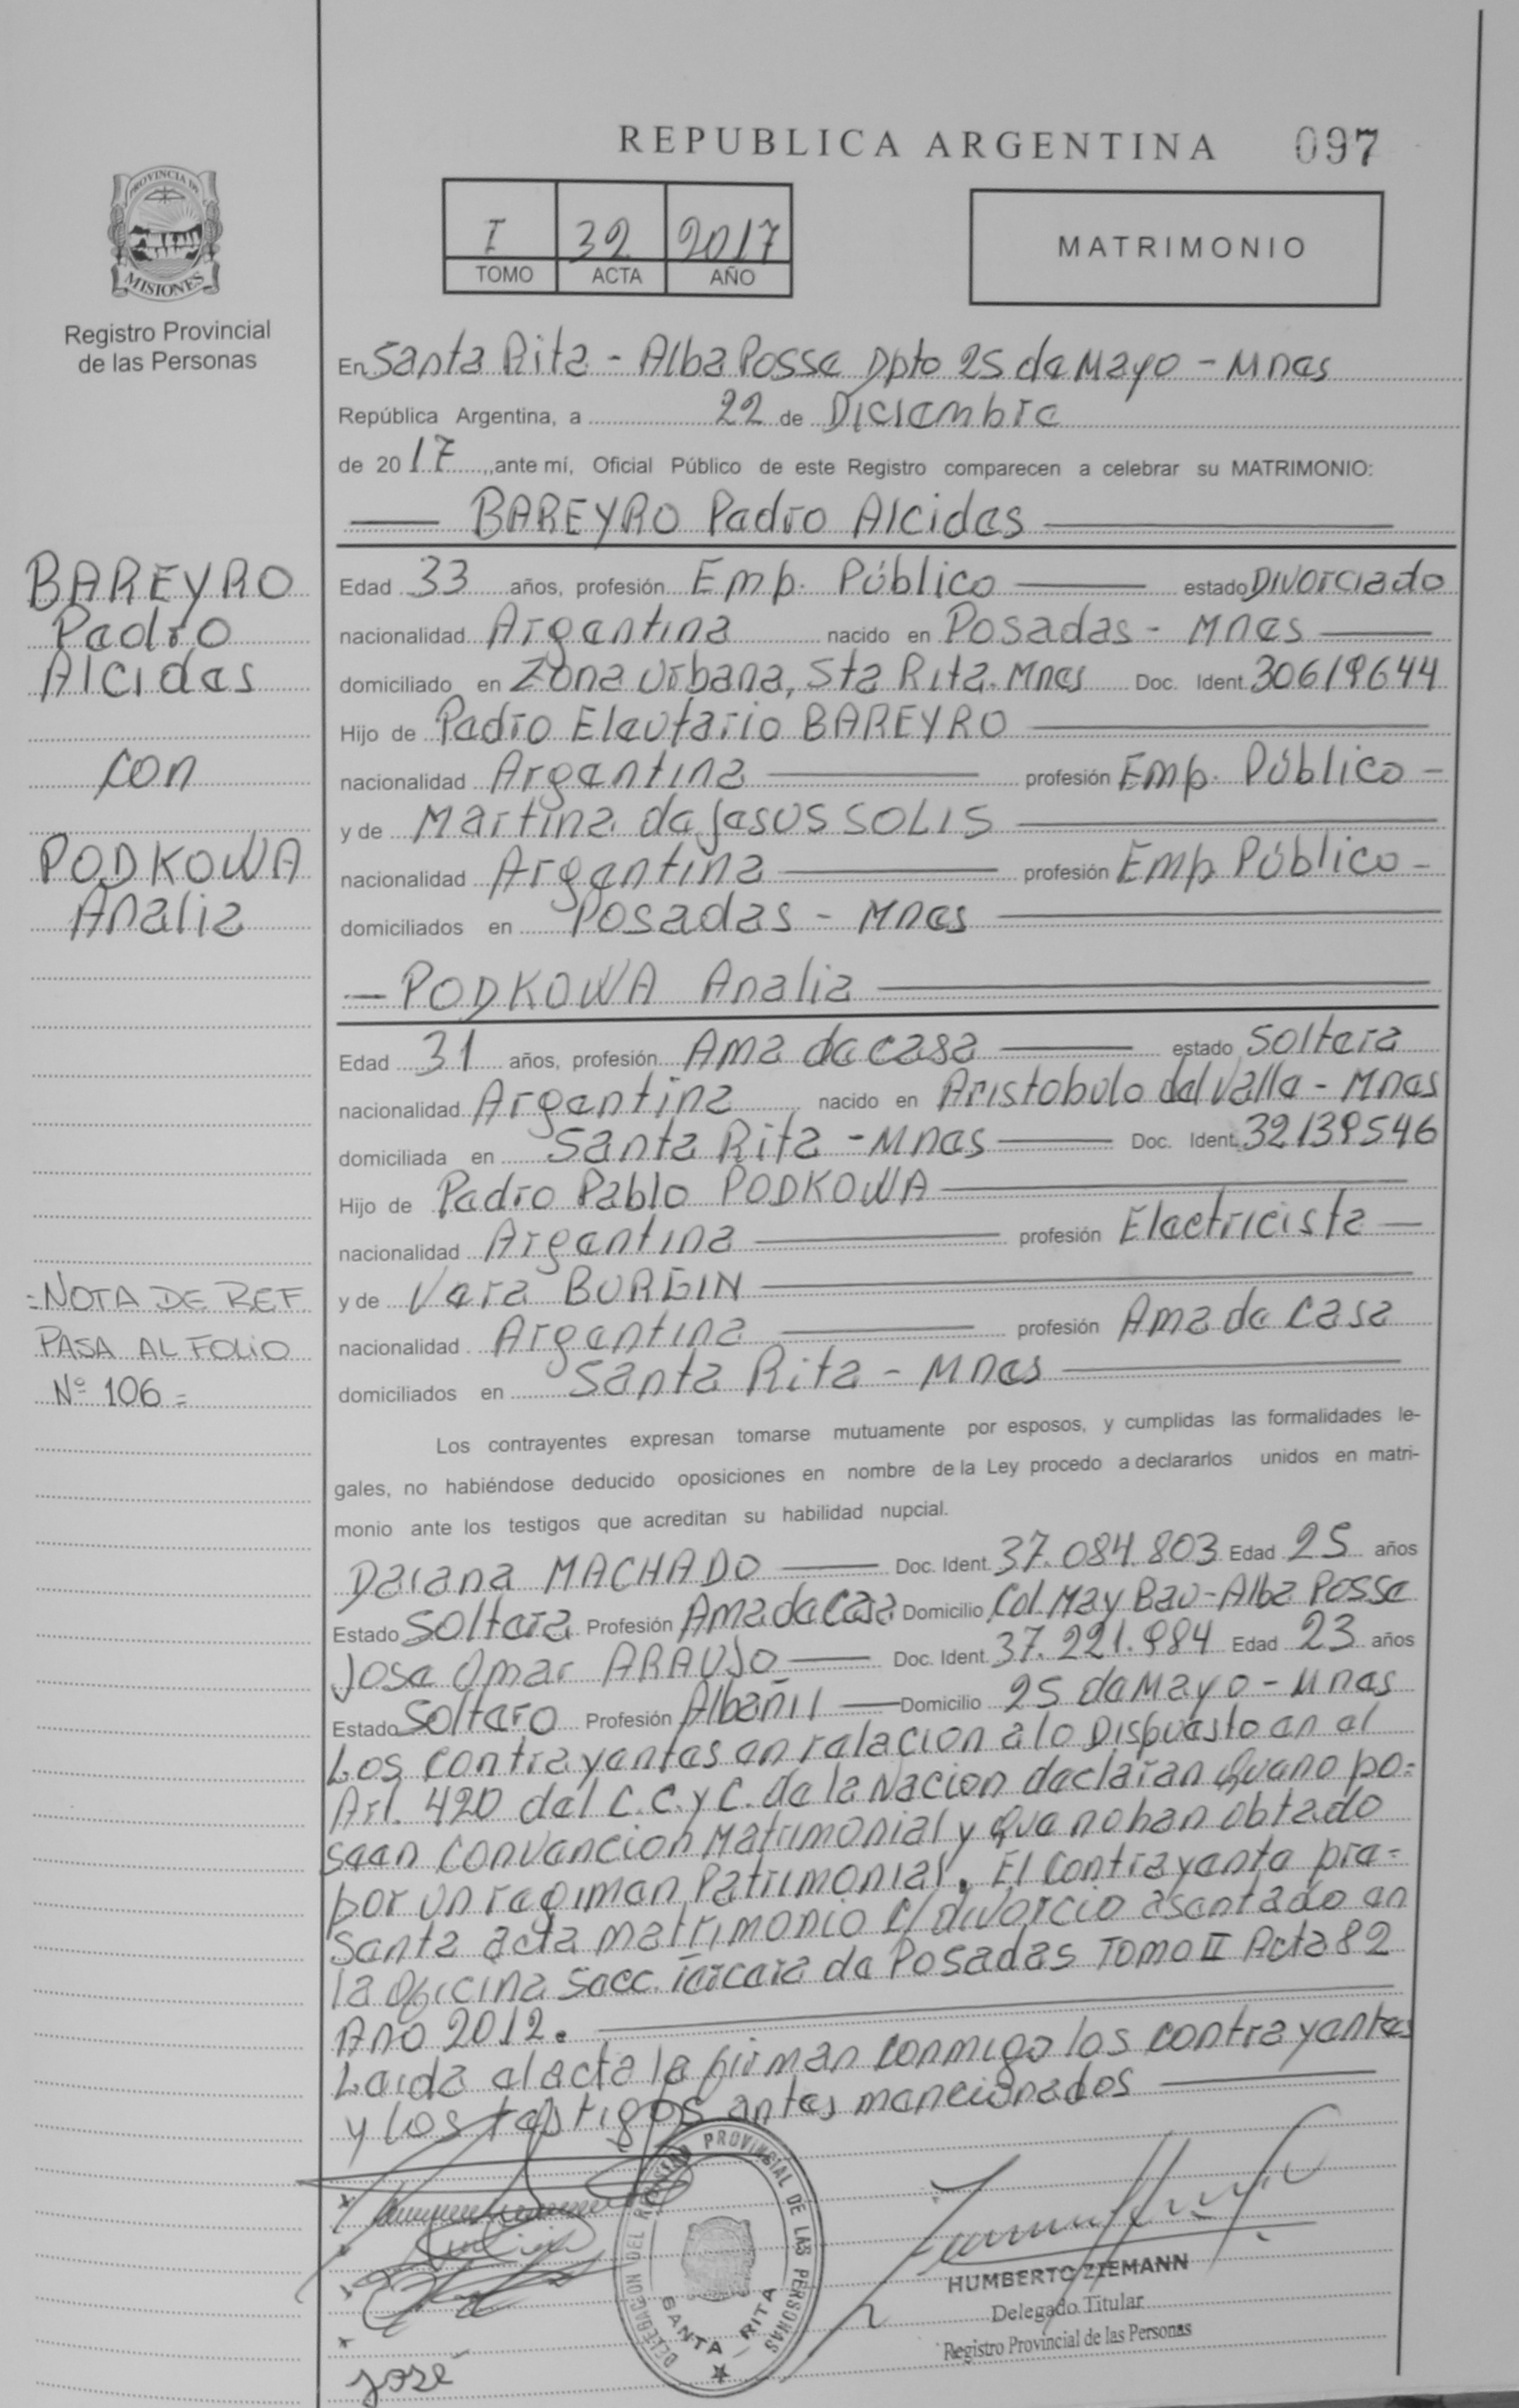 REPUBLICA ARGENTINA 097
PROVINCIA DE
MISIONES
Registro Provincial
de las Personas
I 32 2017
TOMO ACTA AÑO
MATRIMONIO
En Santa Rita - Alba Posse Dpto 25 de Mayo - Mnes
República Argentina, a 22 de Diciembre
de 2017, ante mí, Oficial Público de este Registro comparecen a celebrar su MATRIMONIO:
BAREYRO Pedro Alcides
BAREYRO
Pedro
Alcides
con
PODKOWA
Analia
Edad 33 años, profesión Emp. Público estado Divorciado
nacionalidad Argentina nacido en Posadas - Mnes
domiciliado en Zona Urbana, Sta Rita - Mnes Doc. Ident. 30619644
Hijo de Pedro Eleuterio BAREYRO
nacionalidad Argentina profesión Emp. Público -
y de Martina de Jesus SOLIS
nacionalidad Argentina profesión Emp Público -
domiciliados en Posadas - Mnes
- PODKOWA Analia
Edad 31 años, profesión Ama de casa estado Soltera
nacionalidad Argentina nacido en Aristobulo del Valle - Mnes
domiciliada en Santa Rita - Mnes Doc. Ident. 32139546
Hijo de Pedro Pablo PODKOWA
nacionalidad Argentina profesión Electricista -
y de Vera BURGIN
nacionalidad Argentina profesión Ama de Casa
domiciliados en Santa Rita - Mnes
=NOTA DE REF
PASA AL FOLIO
Nº 106 =
Los contrayentes expresan tomarse mutuamente por esposos, y cumplidas las formalidades le-
gales, no habiéndose deducido oposiciones en nombre de la Ley procedo a declararlos unidos en matri-
monio ante los testigos que acreditan su habilidad nupcial.
Daiana MACHADO Doc. Ident. 37.084.803 Edad 25 años
Estado Soltera Profesión Ama de Casa Domicilio Col. May Bao - Alba Posse
Jose Omar ARAUJO Doc. Ident. 37.221.984 Edad 23 años
Estado Soltero Profesión Albañil Domicilio 25 de Mayo - Mnes
Los contrayentes en relacion a lo Dispuesto en el
Art. 420 del C.C.y C. de la Nacion declaran Que no po=
seen convencion Matrimonial y Que no han obtado
por un regimen Patrimonial. El Contrayente pre=
senta acta matrimonio c/ divorcio asentado en
la oficina Secc. Tercera de Posadas TOMO II Acta 82
Año 2012.
Leida el acta la firman conmigo los contrayentes
y los testigos antes mencionados
DELEGACION DEL REGISTRO PROVINCIAL DE LAS PERSONAS
SANTA RITA
HUMBERTO ZIEMANN
Delegado Titular
Registro Provincial de las Personas
José